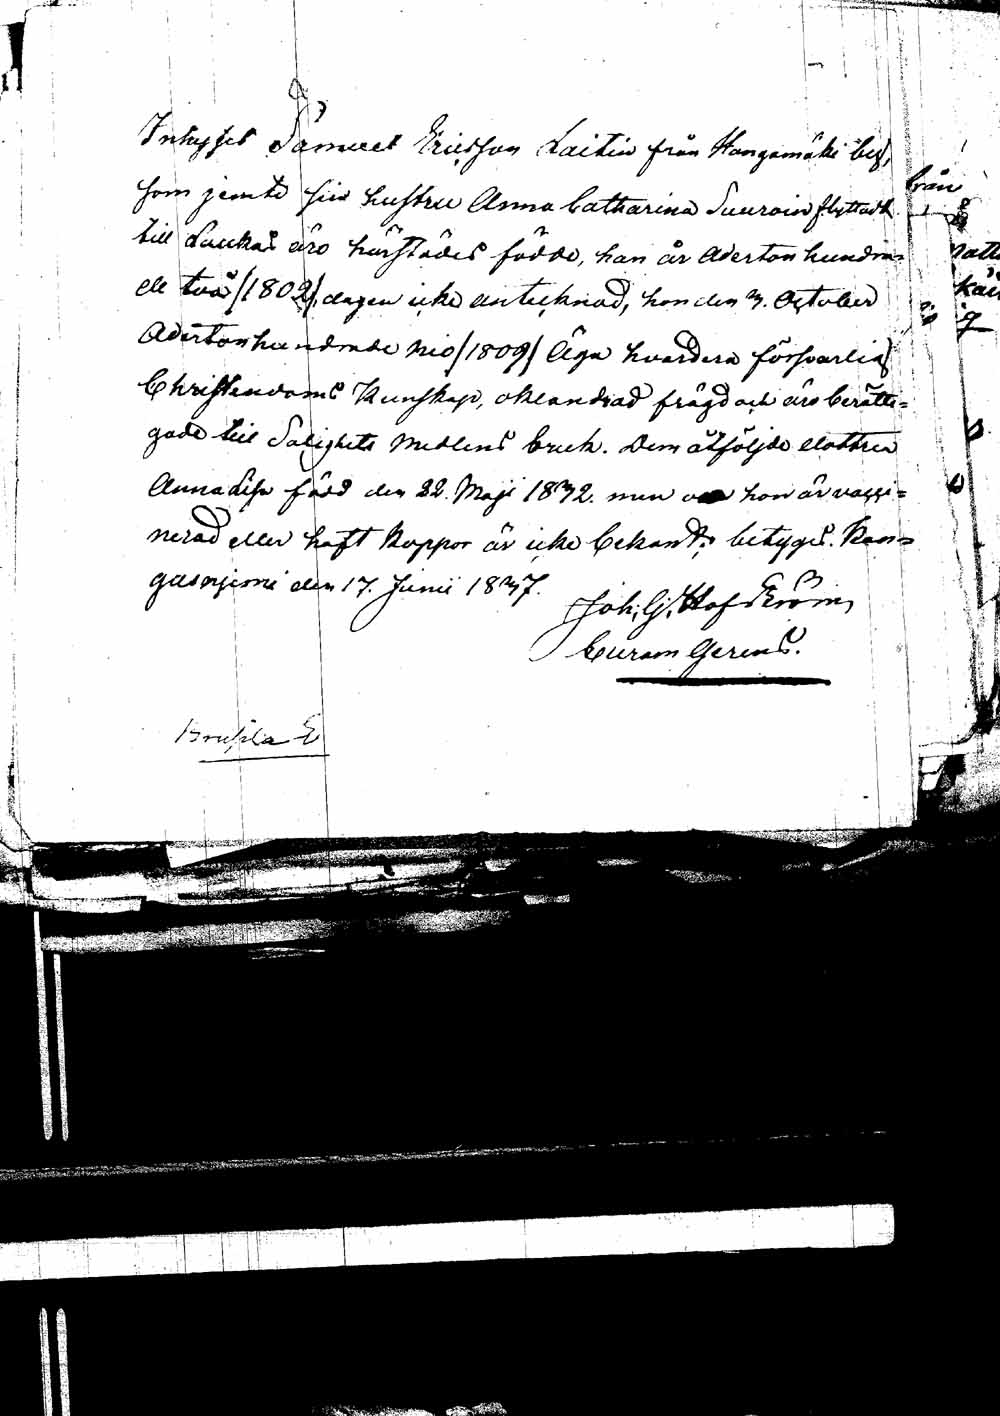 Inhyses Samuel Ericsson Laitin från Kangamäki by,
som jemte sin hustru Anna Catharina Suuroin flyttadt
till Laukas äro härstädes födde, han år Adertonhundra=
de två /1802/, dagen icke antecknad, hon den 3. October
Adertonhundrade nio /1809/ Äga hvardera försvarlig
Christendoms Kunskap, oklandrad frägd och äro berätti=
gade till Salighets Medlens bruk. Dem åtföljde dottren
Anna Lisa född den 22. Maji 1832. men om hon är vacci=
nerad eller haft Koppor är icke bekant; betygar. Kan=
gasniemi den 17. Junii 1837.
Joh. Gj. Hofström
Curam Gerens.
från